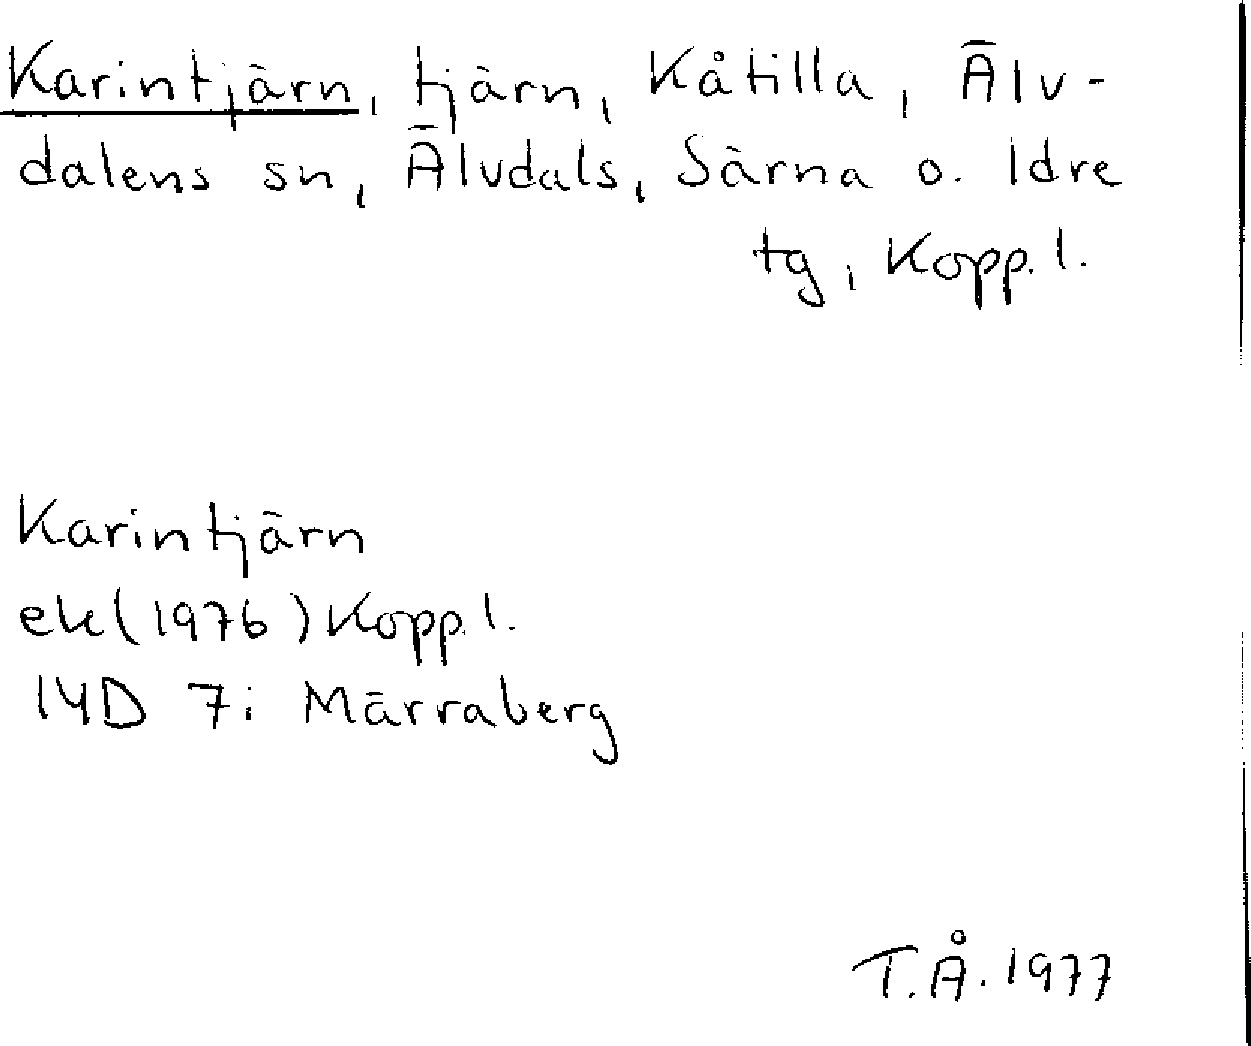 Karintjärn, tjärn, Kåtilla, Älv-
dalens sn, Älvdals, Särna o. Idre
tg, Kopp. l.
Karintjärn
ek (1976) Kopp. l.
14D 7i Märraberg
T.Å. 1977